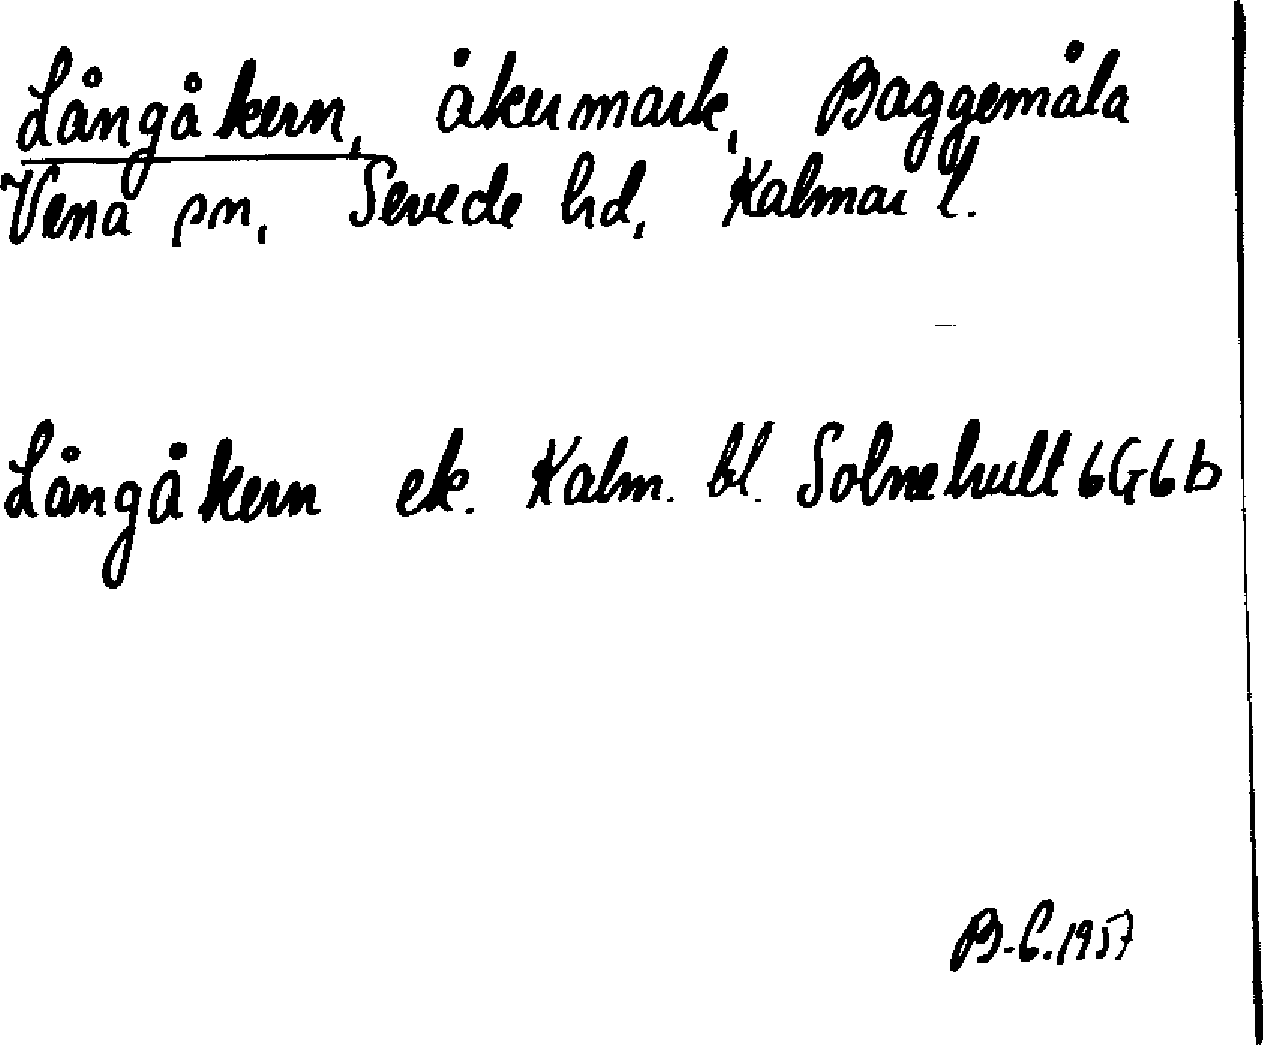 Långåkern, åkermark, Baggemåla
Vena sn, Sevede hd, Kalmar l.
Långåkern ek. Kalm. bl. Solnehult 6G6b
B-C. 1957